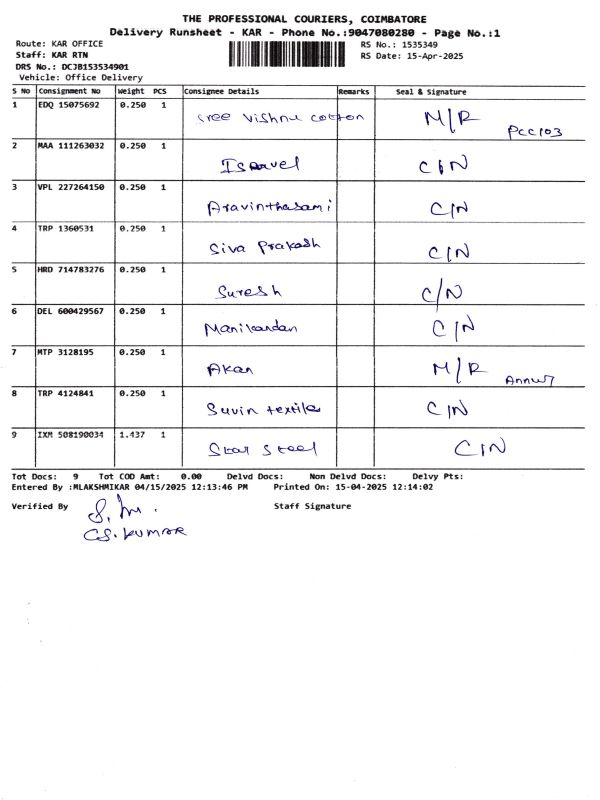 THE PROFESSIONAL COURIERS, COIMBATORE
Delivery Runsheet - KAR - Phone No.:9047080280 - Page No.:1
Route: KAR OFFICE RS No.: 1535349
Staff: KAR RTN RS Date: 15-Apr-2025
DRS No.: DC3B153534901
Vehicle: Office Delivery
S No Consignment No Weight PCS Consignee Details Remarks Seal & Signature
1 EDQ 15075692 0.250 1 Sree Vishnu Cotton M/R PCC103
2 MAA 111263032 0.250 1 Isravel C/N
3 VPL 227264150 0.250 1 Aravinthasami C/N
4 TRP 1360531 0.250 1 Siva Prakash C/N
5 HRD 714783276 0.250 1 Suresh C/N
6 DEL 600429567 0.250 1 Manikandan C/N
7 MTP 3128195 0.250 1 Akan M/R
8 TRP 4124841 0.250 1 Suvin textile C/N
9 IXM 508190034 1.437 1 Star Steel C/N
Tot Docs: 9 Tot COD Amt: 0.00 Delvd Docs: Non Delvd Docs: Delvy Pts:
Entered By :MLAKSHMIKAR 04/15/2025 12:13:46 PM Printed On: 15-04-2025 12:14:02
Verified By Staff Signature
C.S. KUMAR